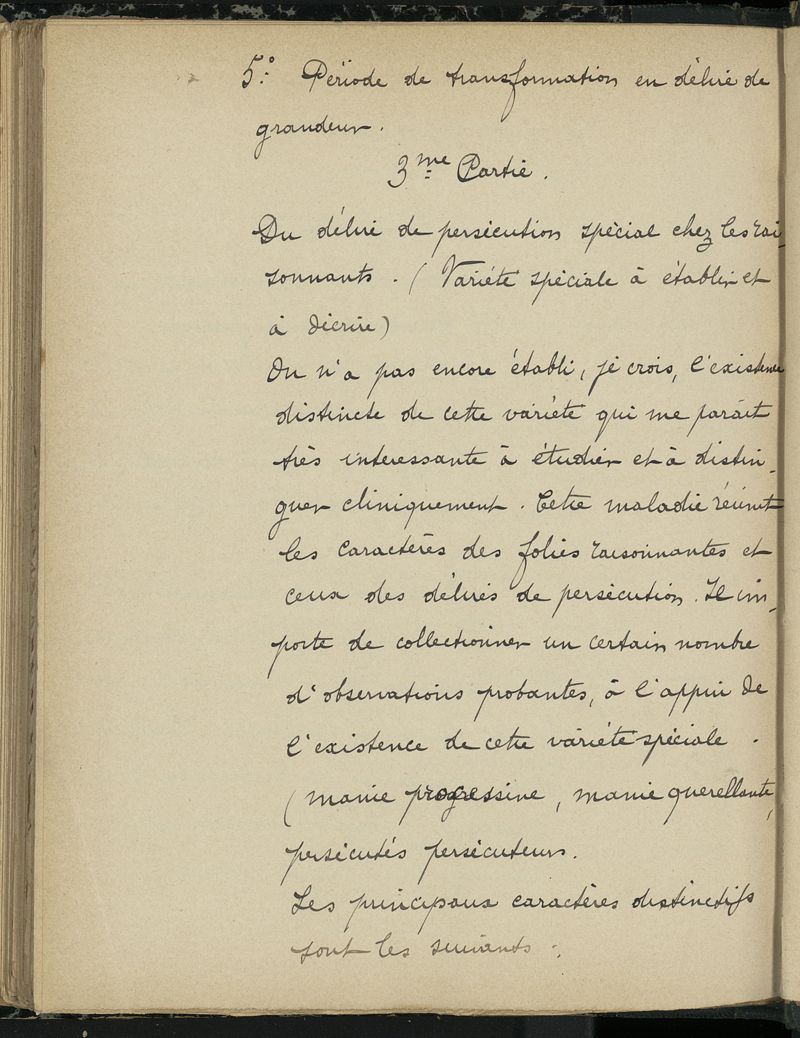 5°: Période de transformation en délire de
grandeur.
3me Partie.
Du délire de persécution spécial chez les rai-
sonnants. (Variété spéciale à établir et
à décrire)
On n'a pas encore établi, je crois, l'existence
distincte de cette variété qui me paraît
très intéressante à étudier et à distin-
guer cliniquement. Cette maladie réunit
les caractères des folies raisonnantes et
ceux des délires de persécution. Il im-
porte de collectionner un certain nombre
d'observations probantes, à l'appui de
l'existence de cette variété spéciale.
(manie progressive, manie querellante,
persécutés persécuteurs.
Les principaux caractères distinctifs
sont les suivants :